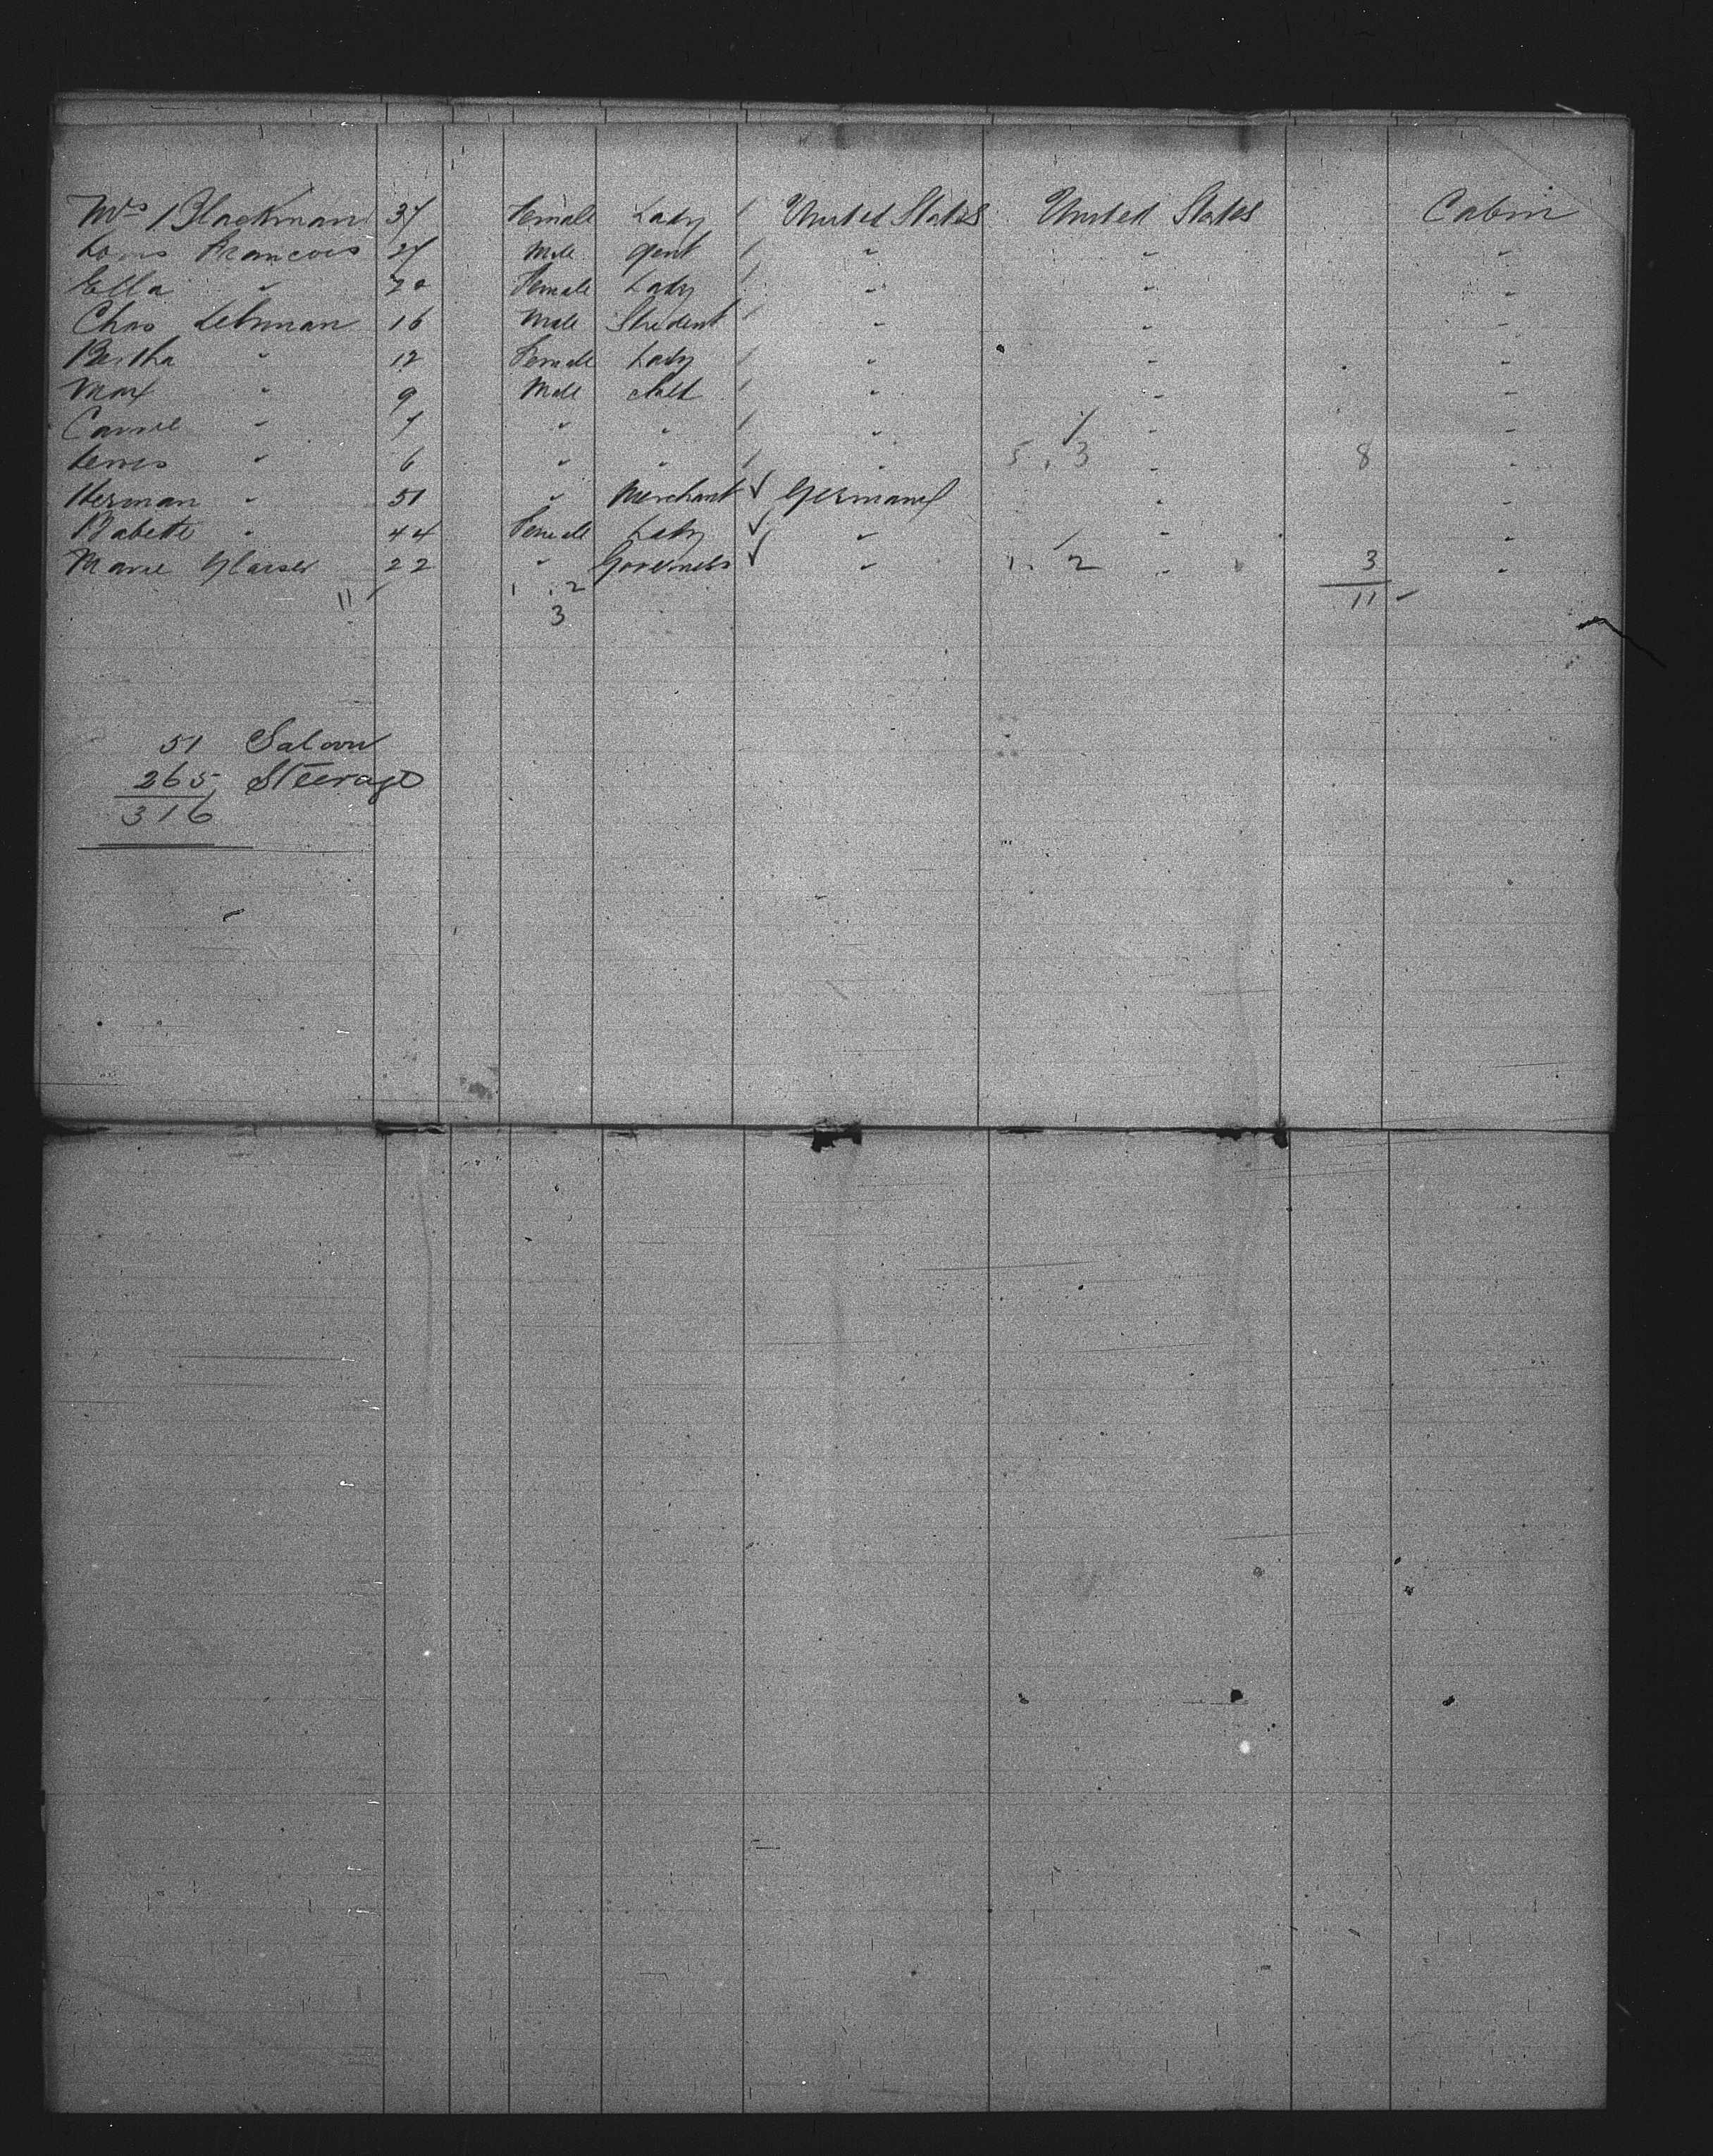 Mrs Blackman 37 Female Lady / United States United States Cabin
Louis Francois 27 Male Gent / " " "
Ella " Female Lady / " " "
Chas Lehman 16 Male Student / " " "
Bertha " 12 Female Lady / " " "
Max " 9 Male child / " " "
Carrie " 7 " " / " " "
" 6 " " / " 5 . 3 " 8 "
Herman " 51 " Merchant ✓ Germany " "
Babette " 44 Female Lady ✓ " " "
Marie Glaiser 22 " Governess ✓ " 1 . 2 " 3 "
11 1 . 2 11
3
51 Saloon
265 Steerage
316